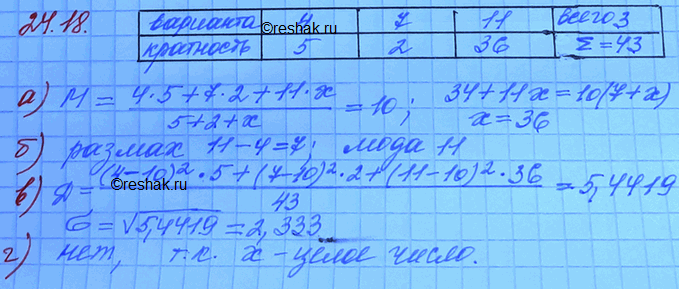 24.18.
варианта 4 7 11 всего 3
кратность 5 2 36 Σ = 43
©reshak.ru
а) M = (4·5+7·2+11·x)/(5+2+x) = 10; 34+11x=10(7+x)
x = 36
б) размах 11-4=7; мода 11
в) D = ((4-10)²·5+(7-10)²·2+(11-10)²·36)/43 = 5,4419
©reshak.ru
σ = √5,4419 = 2,333
г) нет, т.к. x - целое число.